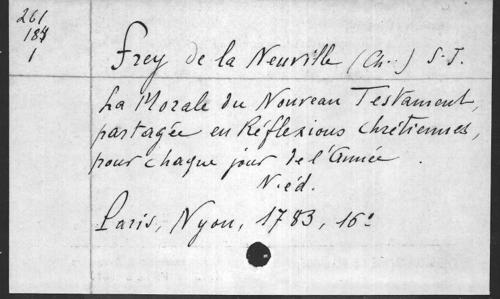 261
184
1
Frey de la Neuville (Ch..) S.J.
La Morale du Nouveau Testament,
partagée en Réflexions chrétiennes,
pour chaque jour de l'Année.
N. éd.
Paris, Nyon, 1783, 16º